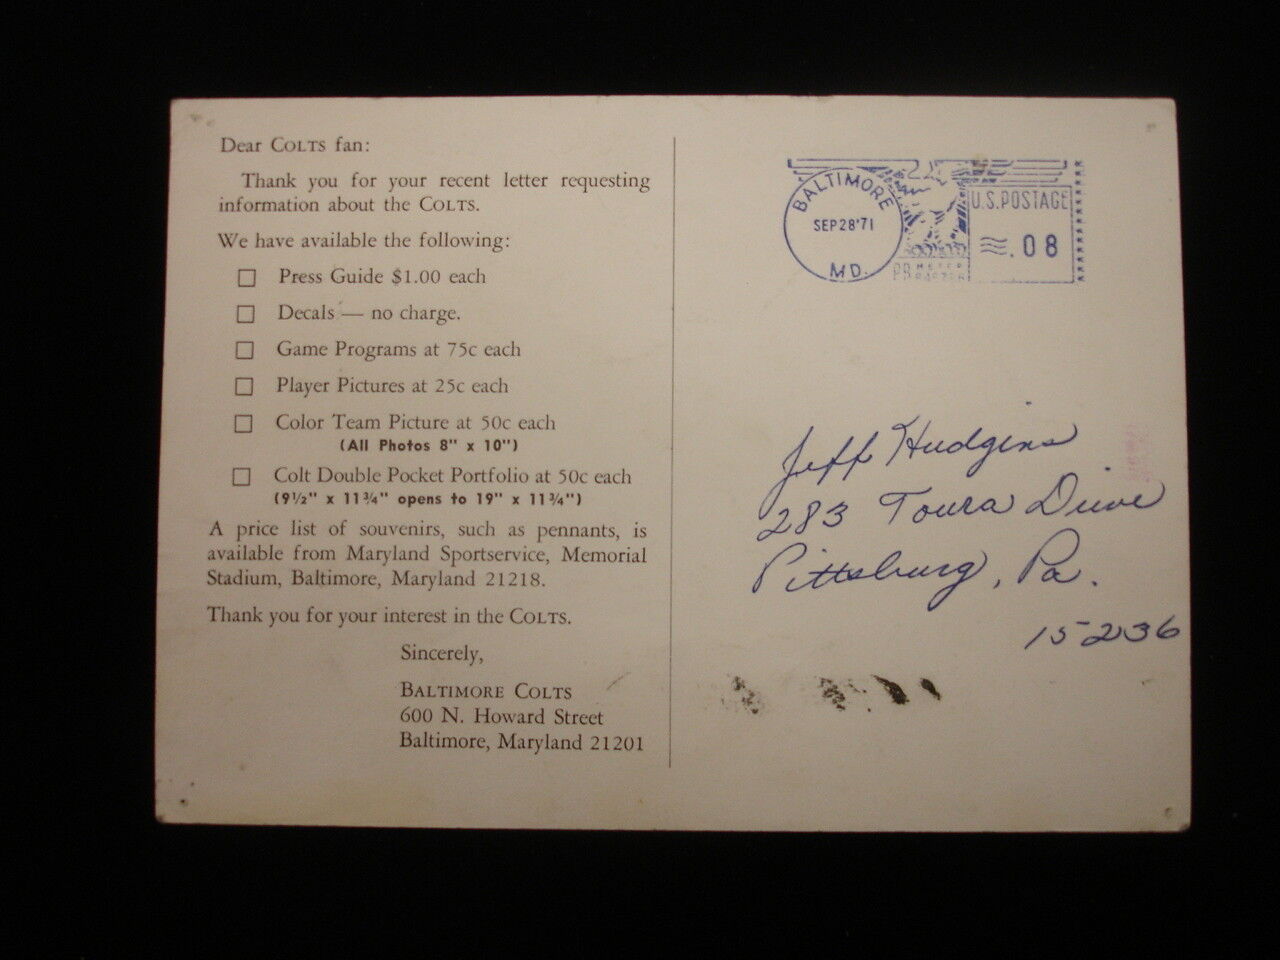 Dear COLTS fan:
Thank you for your recent letter requesting
information about the COLTS.
We have available the following:
☐ Press Guide $1.00 each
☐ Decals — no charge.
☐ Game Programs at 75c each
☐ Player Pictures at 25c each
☐ Color Team Picture at 50c each
(All Photos 8" x 10")
☐ Colt Double Pocket Portfolio at 50c each
(9½" x 11¾" opens to 19" x 11¾")
A price list of souvenirs, such as pennants, is
available from Maryland Sportservice, Memorial
Stadium, Baltimore, Maryland 21218.
Thank you for your interest in the COLTS.
Sincerely,
BALTIMORE COLTS
600 N. Howard Street
Baltimore, Maryland 21201
BALTIMORE
SEP 28 '71
MD.
U.S. POSTAGE
.08
PB METER
Jeff Hudgins
283 Toura Drive
Pittsburg, Pa.
15236